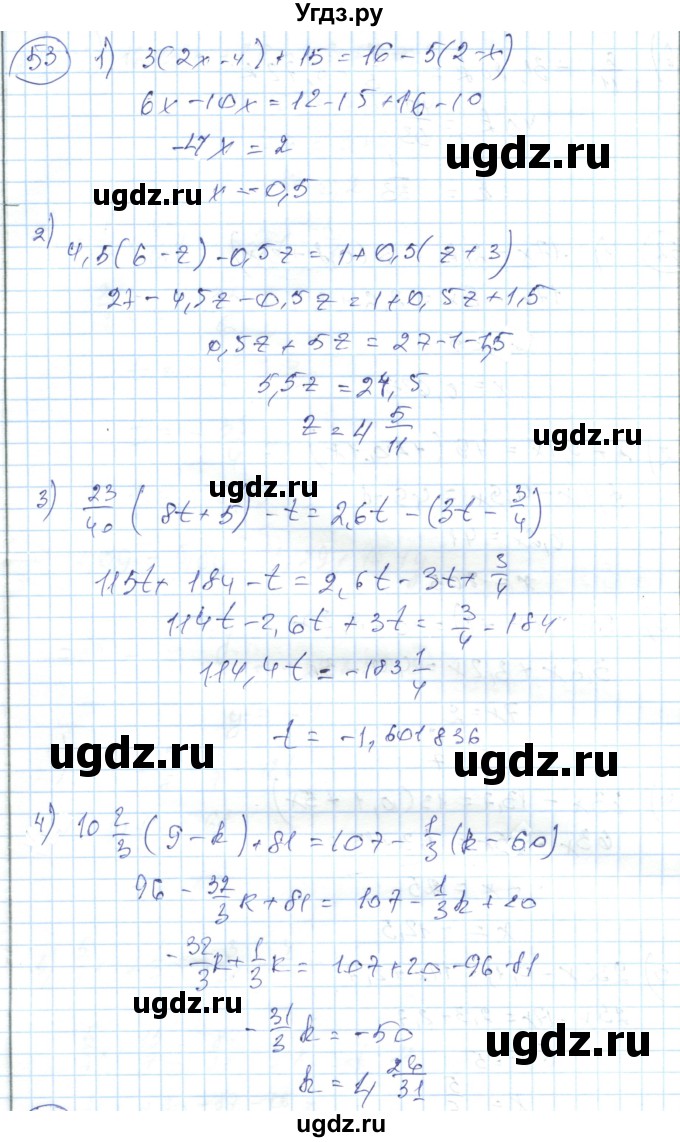 Угдз.ру
53 1) 3(2x-4)+15=16-5(2-x)
6x-10x=12-15+16-10
-4x=2
ugdz.ru
ugdz.ru x=-0,5
2) 4,5(6-z)-0,5z=1+0,5(z+3)
27-4,5z-0,5z=1+0,5z+1,5
0,5z+5z=27-1-1,5
5,5z=24,5
z=4 5/11
ugdz.ru
ugdz.ru
3) 23/40 (8t+5)-t=2,6t-(3t-3/4)
115t+184-t=2,6t-3t+3/4
114t-2,6t+3t=3/4-184
114,4t=-183 1/4
t=-1,601836
ugdz.ru ugdz.ru
4) 10 2/3 (9-k)+81=107-1/3(k-60)
96-32/3k+81=107-1/3k+20
-32/3k+1/3k=107+20-96-81
ugdz.ru
-31/3k=-50
ugdz.ru
k=4 26/31
ugdz.ru